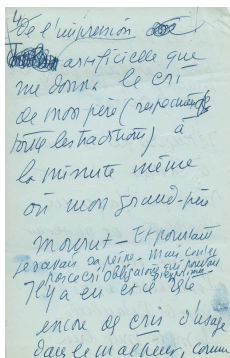 4
De l'impression
artificielle que
me donna le cri
de mon père (respectueux
toutes les traditions) à
la minute même
où mon grand-père
mourut – Et pourtant
je savais sa peine – mais
ce cri obligatoire
Il y a eu et
encore des cris d'usage
dans le malheur, comme